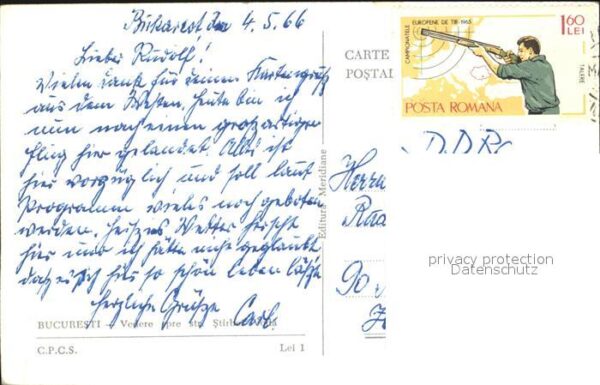 Bukarest den 4.5.66
Lieber Rudolf!
Vielen Dank für deinen Kartengruß
aus dem Westen. Heute bin ich
nun nach einem großartigen
Flug hier gelandet. Alles ist
hier vorzüglich und soll laut
Programm vieles noch geboten
werden. Heißes Wetter herrscht
hier und ich hätte nie geglaubt
daß es sich hier so schön leben läßt
Herzliche Grüße
Carl.
BUCUREŞTI – Vedere spre str. Ştirbei
C.P.C.S. Lei 1
Editura Meridiane
CARTE
POŞTAL
CAMPIONATELE EUROPENE DE TIR-1965
1,60 LEI
TALERE
POSTA ROMANA
D.D.R.
Herrn
90
privacy protection
Datenschutz